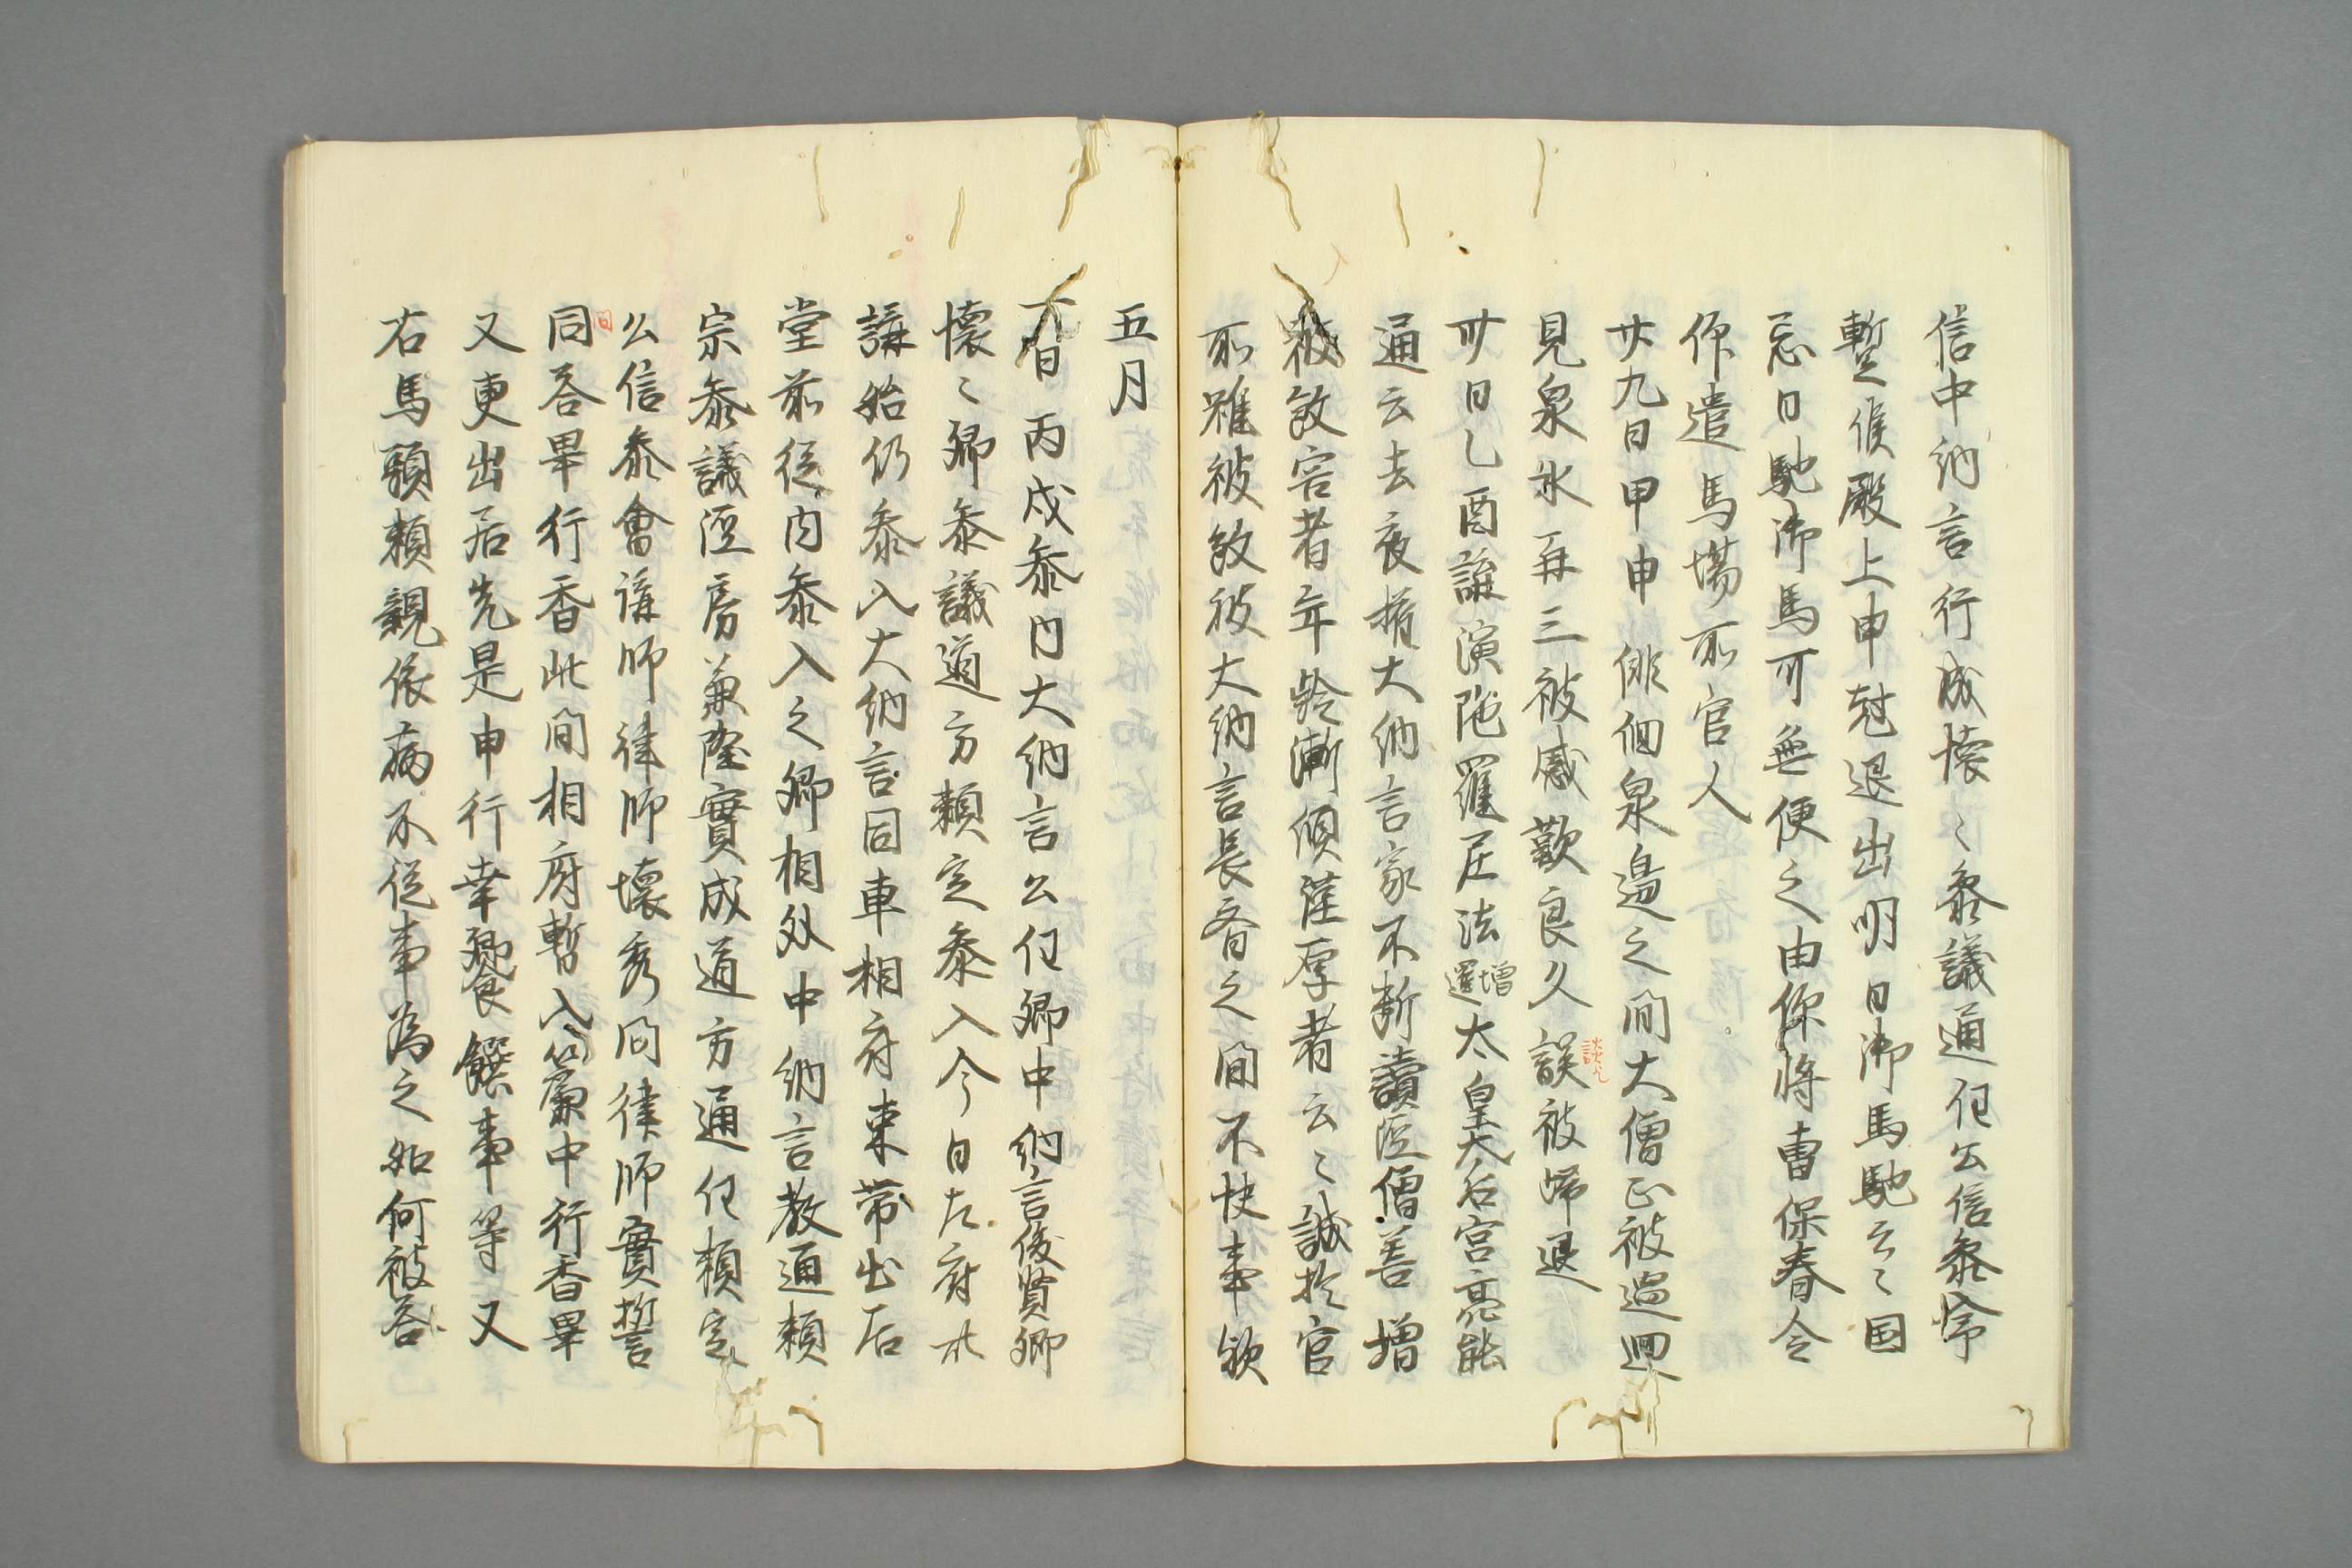 信中納言行成懐〻参議通任公信参啼
暫候殿上申尅退出明日御馬馳云〻国
忌日馳御馬可無便之由仰将曹保春令
仰遣馬場所官人
廿九日甲申申俳佪泉邉之間大僧正被過廻
見泉水再三被感歎良久誤被帰退
談欤
卅日乙酉講演陁羅尼法増暹太皇太后宮亮能
通云去夜摂大納言家不断讀経僧善増
被敘害者年齢漸傾薩厚者云〻誠於官
所雖被敘彼大納言長斎之間不快事欤
五月
一日丙戌参内大納言公任卿中納言俊賢卿
懐〻卿参議道方頼定参入今日左府卅
講始仍参入大納言同車相府束帯出居
堂前従内参入之卿相外中納言教通頼
宗参議経房兼隆實成道方通任頼定
公信参會講師律師懐秀問律師實誓
問
同答畢行香此間相府暫入簾中行香畢
又更出居先是申行幸饗饌事等又
右馬頭頼親依病不従事為之如何被答